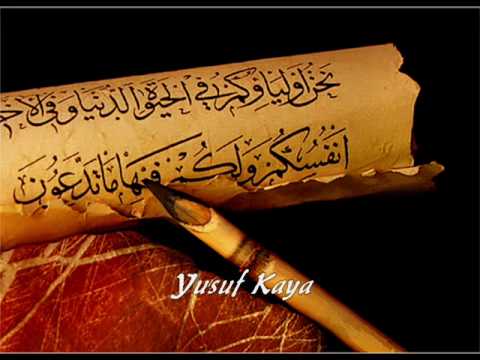 نَحْنُ اَوْلِيَاؤُكُمْ فِي الْحَيٰوةِ الدُّنْيَا وَفِي الْاٰخِ
اَنْفُسُكُمْ وَلَكُمْ فِيهَا مَا تَدَّعُونَ
Yusuf Kaya